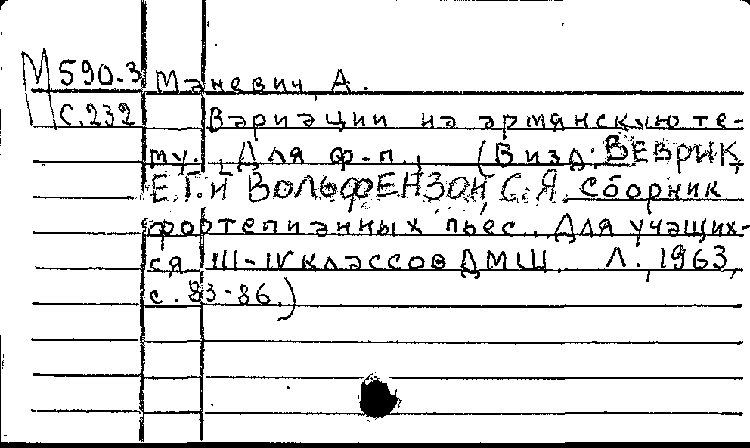 М 590-3 Маневич, А.
с.232 Вариации на армянскую те-
му. Для ф.-п., (В изд: ВЕВРИК,
Е.Г. и ВОЛЬФЕНЗОН, С.Я. Сборник
фортепианных пьес. Для учащих-
ся III-IV классов ДМШ. Л., 1963,
с. 83-86.)